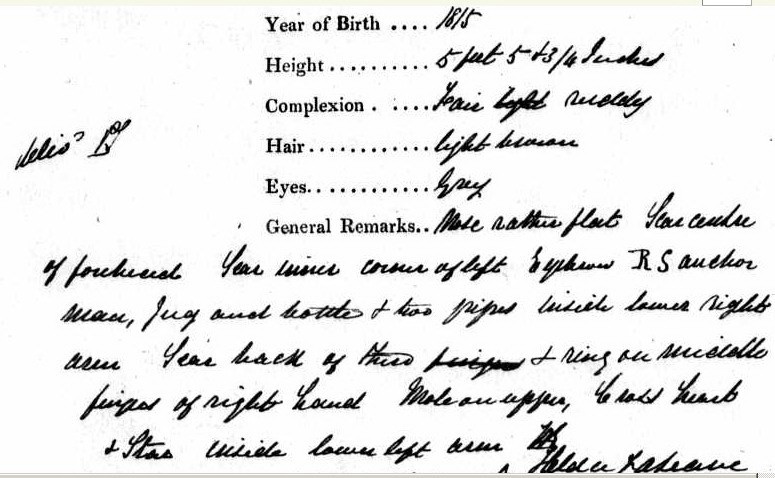 Year of Birth .... 1815
Height .......... 5 feet 5 & 3/4 Inches
Complexion . ..... Fair light ruddy
Hair ............ light brown
Eyes ............ Grey
General Remarks .. Nose rather flat Scar centre
of forehead Scar inner corner of left Eyebrow R S anchor
man, Jug and bottle & two pipes inside lower right
arm Scar back of third finger & ring on middle
finger of right hand Mole on upper, Cross heart
& Star inside lower left arm